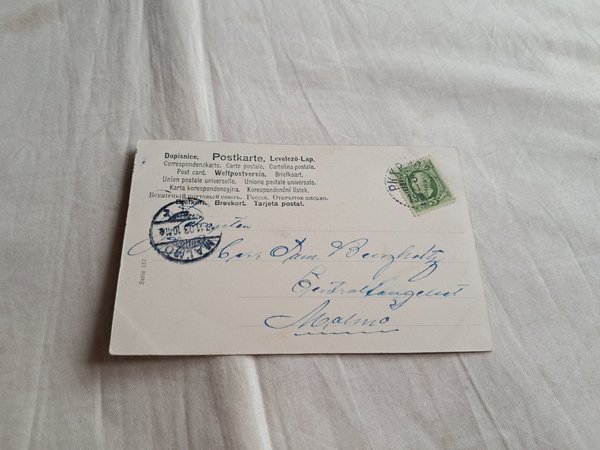 Dopisnice. Postkarte. Levelező-Lap.
Correspondenzkarte. Carte postale. Cartolina postale.
Post card. Weltpostverein. Briefkaart.
Union postale universelle. Unione postale universale.
Karta korespondencyjna. Korespondenční lístek.
Всемирный почтовый союзъ. Россія. Открытое письмо.
Brefkort. Brevkort. Tarjeta postal.
MALMÖ
03
Centralfängelset
Malmö
Serie 157